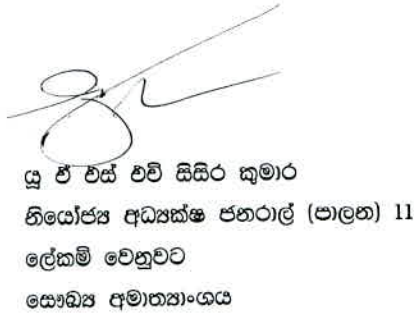 යූ ඒ එස් එච් සිසිර කුමාර
නියෝජ්‍ය අධ්‍යක්ෂ ජනරාල් (පාලන) 11
ලේකම් වෙනුවට
සෞඛ්‍ය අමාත්‍යාංශය